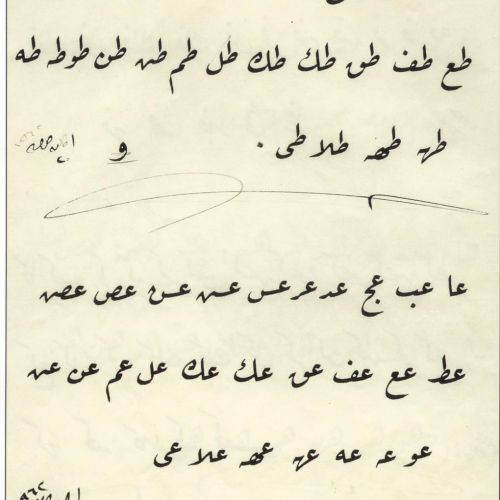 طع طف طق طك طك طل طم طن طن طو طه طه
طه طهه طلا طى .
و
عا عب عج عد عر عس عس عس عص عص
عط عع عف عق عك عك عل عم عن عن
عو عه عه عه عهه علا عى